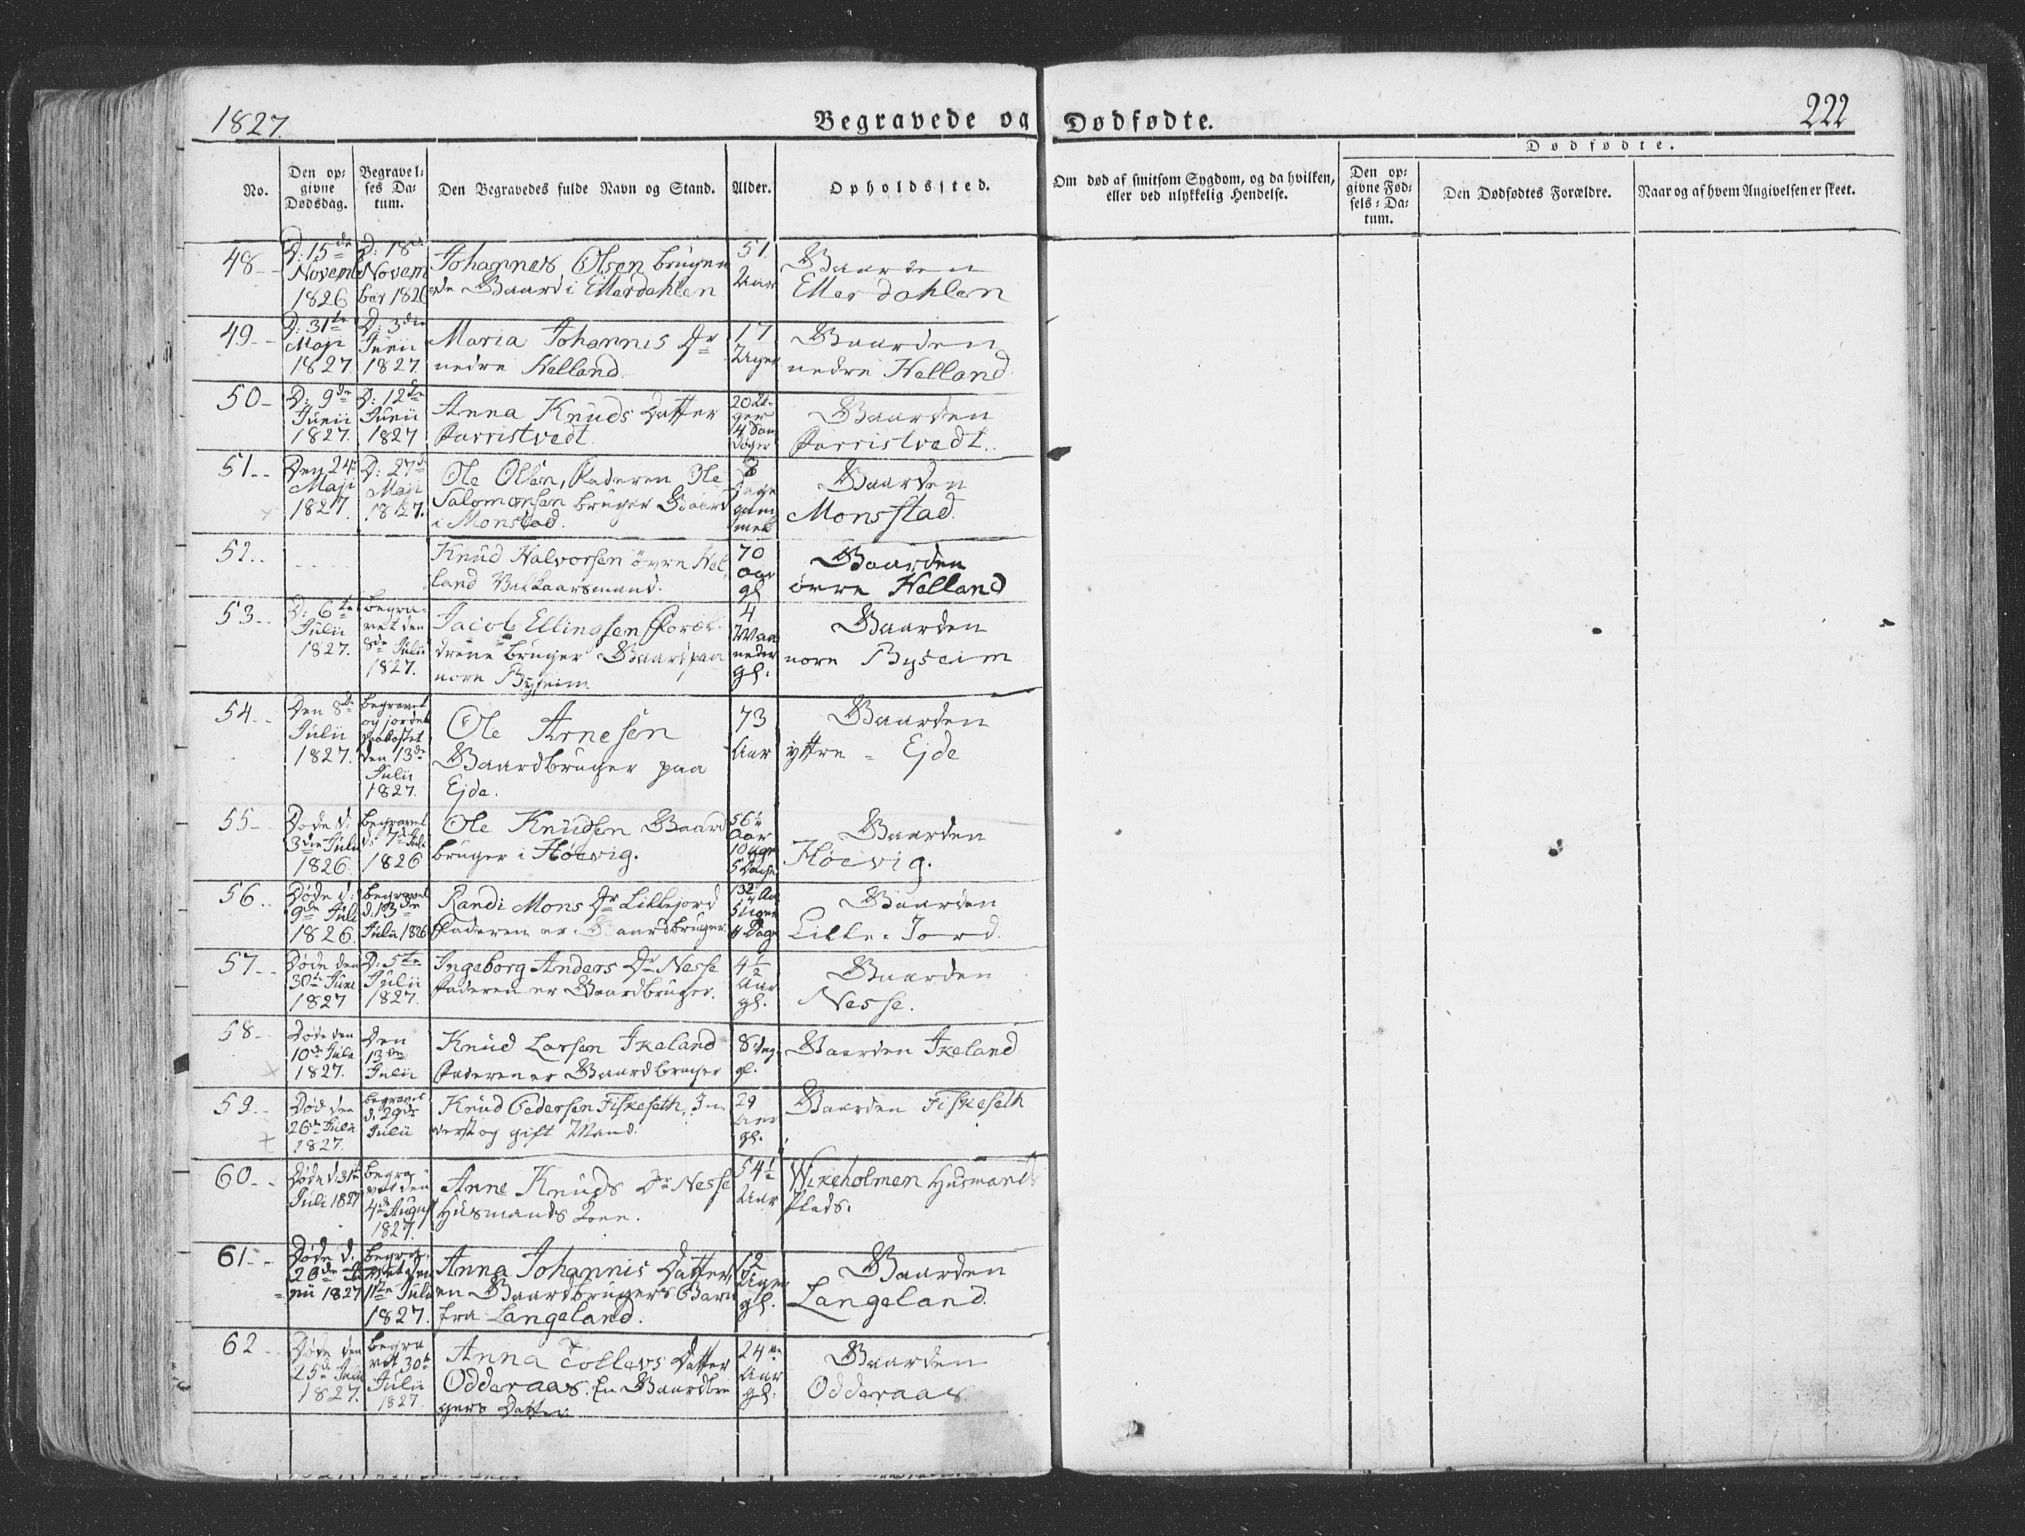 1827.
Begravede og Dødfødte.
222
Dødfødte.
No.
Den op-
givne
Dødsdag.
Begravel-
ses Da-
tum.
Den Begravedes fulde Navn og Stand.
Alder.
Opholdssted.
Om død af smitsom Sygdom, og da hvilken,
eller ved ulykkelig Hendelse.
Den op-
givne Fød-
sels-Da-
tum.
Den Dødfødtes Forældre.
Naar og af hvem Angivelsen er skeet.
48
D: 15de
Novemb
1826
D: 18de
Novem
ber 1826
Johannes Olsen brugen
de Gaard i Ellerdahlen
51
Aar
Gaarden
Ellerdahlen
49
D: 31te
Maji
1827.
D: 3die
Junii
1827.
Maria Johannis Dr
nedre Helland.
17
Uger
Gaarden
nedre Helland.
50
D: 9de
Junii
1827.
D: 12te
Junii
1827
Anna Knuds Datter
Farristvedt.
20 U-
ger
Gaarden
Farristvedt.
51
Den 24
Maji
1827.
D: 27de
Maji
1827.
Ole Olsen, Faderen Ole
Salomonsen bruger Gaard
i Monstad.
8
Dage
gam
mel
Gaarden
Monsstad.
52
Knud Halvorsen övre Hel
land Vilkaarsmand.
70
Aar
gl.
Gaarden
övre Helland
53
D: 6te
Julii
1827.
begra-
vet den
8de Julii
1827.
Jacob Ellingsen Foræl-
drene bruger Gaard paa
nore Byseim
4
Maa
neder
gl.
Gaarden
nore Byseim
54
Den 8de
Julii
1827.
begravet
og jordet
den 13de
Julii
1827.
Ole Arnesen
Gaardbruger paa
Ejde.
73
Aar
Gaarden
yttre - Ejde
55
Døde d:
3die Julii
1826
begravet
d: 7de Juli
1826
Ole Knudsen Gaard
bruger i Höevig.
56
Aar
10 Uger
5 Dage
Gaarden
Höevig.
56
Døde d:
9de Juli
1826.
begravet
d. 13de
Julii 1826
Randi Mons Dr Lillejord
Faderen er Gaardbruger.
5 Uger
4 Dage
Gaarden
Lille-Jord.
57
Døde den
30te Juni
1827
D: 5te
Julii
1827.
Ingeborg Anders Dr Nesse
Faderen er Gaardbruger.
4½
Aar
gl.
Gaarden
Nesse.
58
Døde den
10de Julii
1827.
Den
13de
Julii
Knud Larsen Ikeland
Faderen er Gaardbruger
8 Dag.
gl.
Gaarden Ikeland
59
Død den
26de Julii
1827.
begravet
d. 29de
Julii
Knud Pedersen Fiskeseth, In-
derst og gift Mand.
29
Aar
gl.
Gaarden Fiskeseth
60
Døde d. 31te
Juli 1827
begra
vet den
4de August
1827.
Anne Knuds Dr Nesse
Husmands Kone.
54½
Aar
Wikeholmen Husmands
Plads.
61
Døde d.
26de Ju
nii 1827
begra-
vet den
11te Julii
1827.
Anna Johannis Datter,
en Gaardbrugers Barn
fra Langeland.
12
Uger
gl.
Gaarden
Langeland.
62
Døde den
25de Julii
1827.
begra
vet 30te
Julii
1827.
Anna Tollevs Datter
Odderaas. En Gaardbru
gers Datter
24
Aar
gl.
Gaarden
Odderaas.